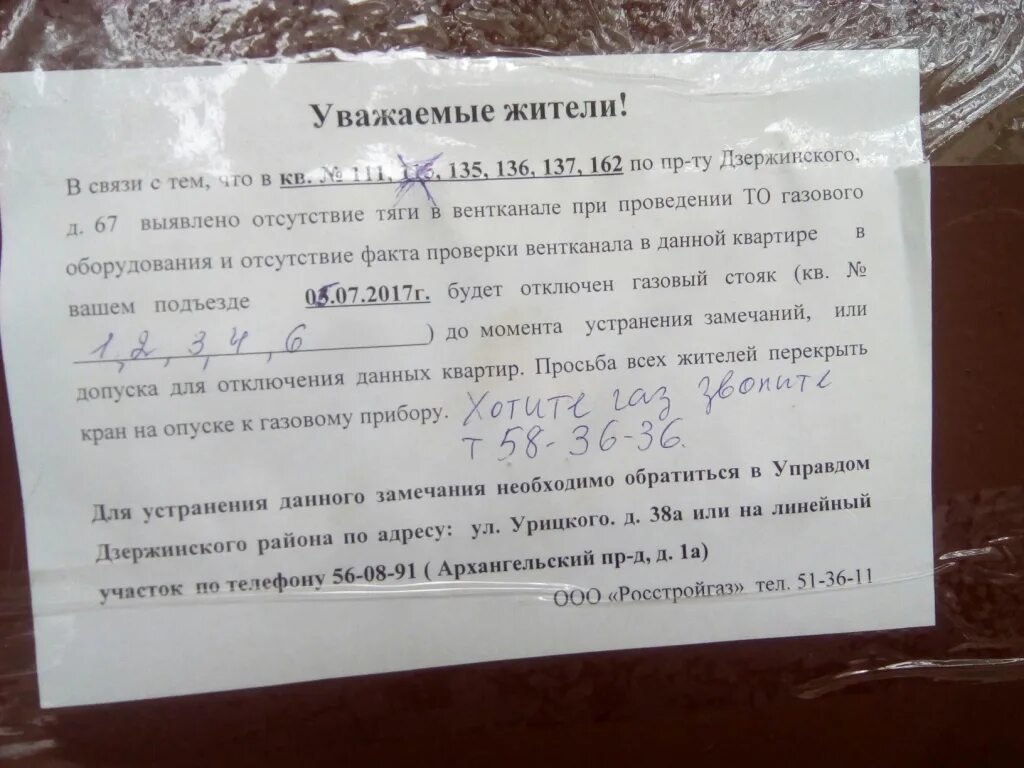 Уважаемые жители!
В связи с тем, что в кв. № 111, 135, 136, 137, 162 по пр-ту Дзержинского,
д. 67 выявлено отсутствие тяги в вентканале при проведении ТО газового
оборудования и отсутствие факта проверки вентканала в данной квартире в
вашем подъезде будет отключен газовый стояк (кв. №
1, 2, 3, 4, 6 ) до момента устранения замечаний, или
допуска для отключения данных квартир. Просьба всех жителей перекрыть
кран на опуске к газовому прибору. Хотите газ звоните
т 58-36-36.
Для устранения данного замечания необходимо обратиться в Управдом
Дзержинского района по адресу: ул. Урицкого. д. 38а или на линейный
участок по телефону 56-08-91 ( Архангельский пр-д, д. 1а)
ООО «Росстройгаз» тел. 51-36-11